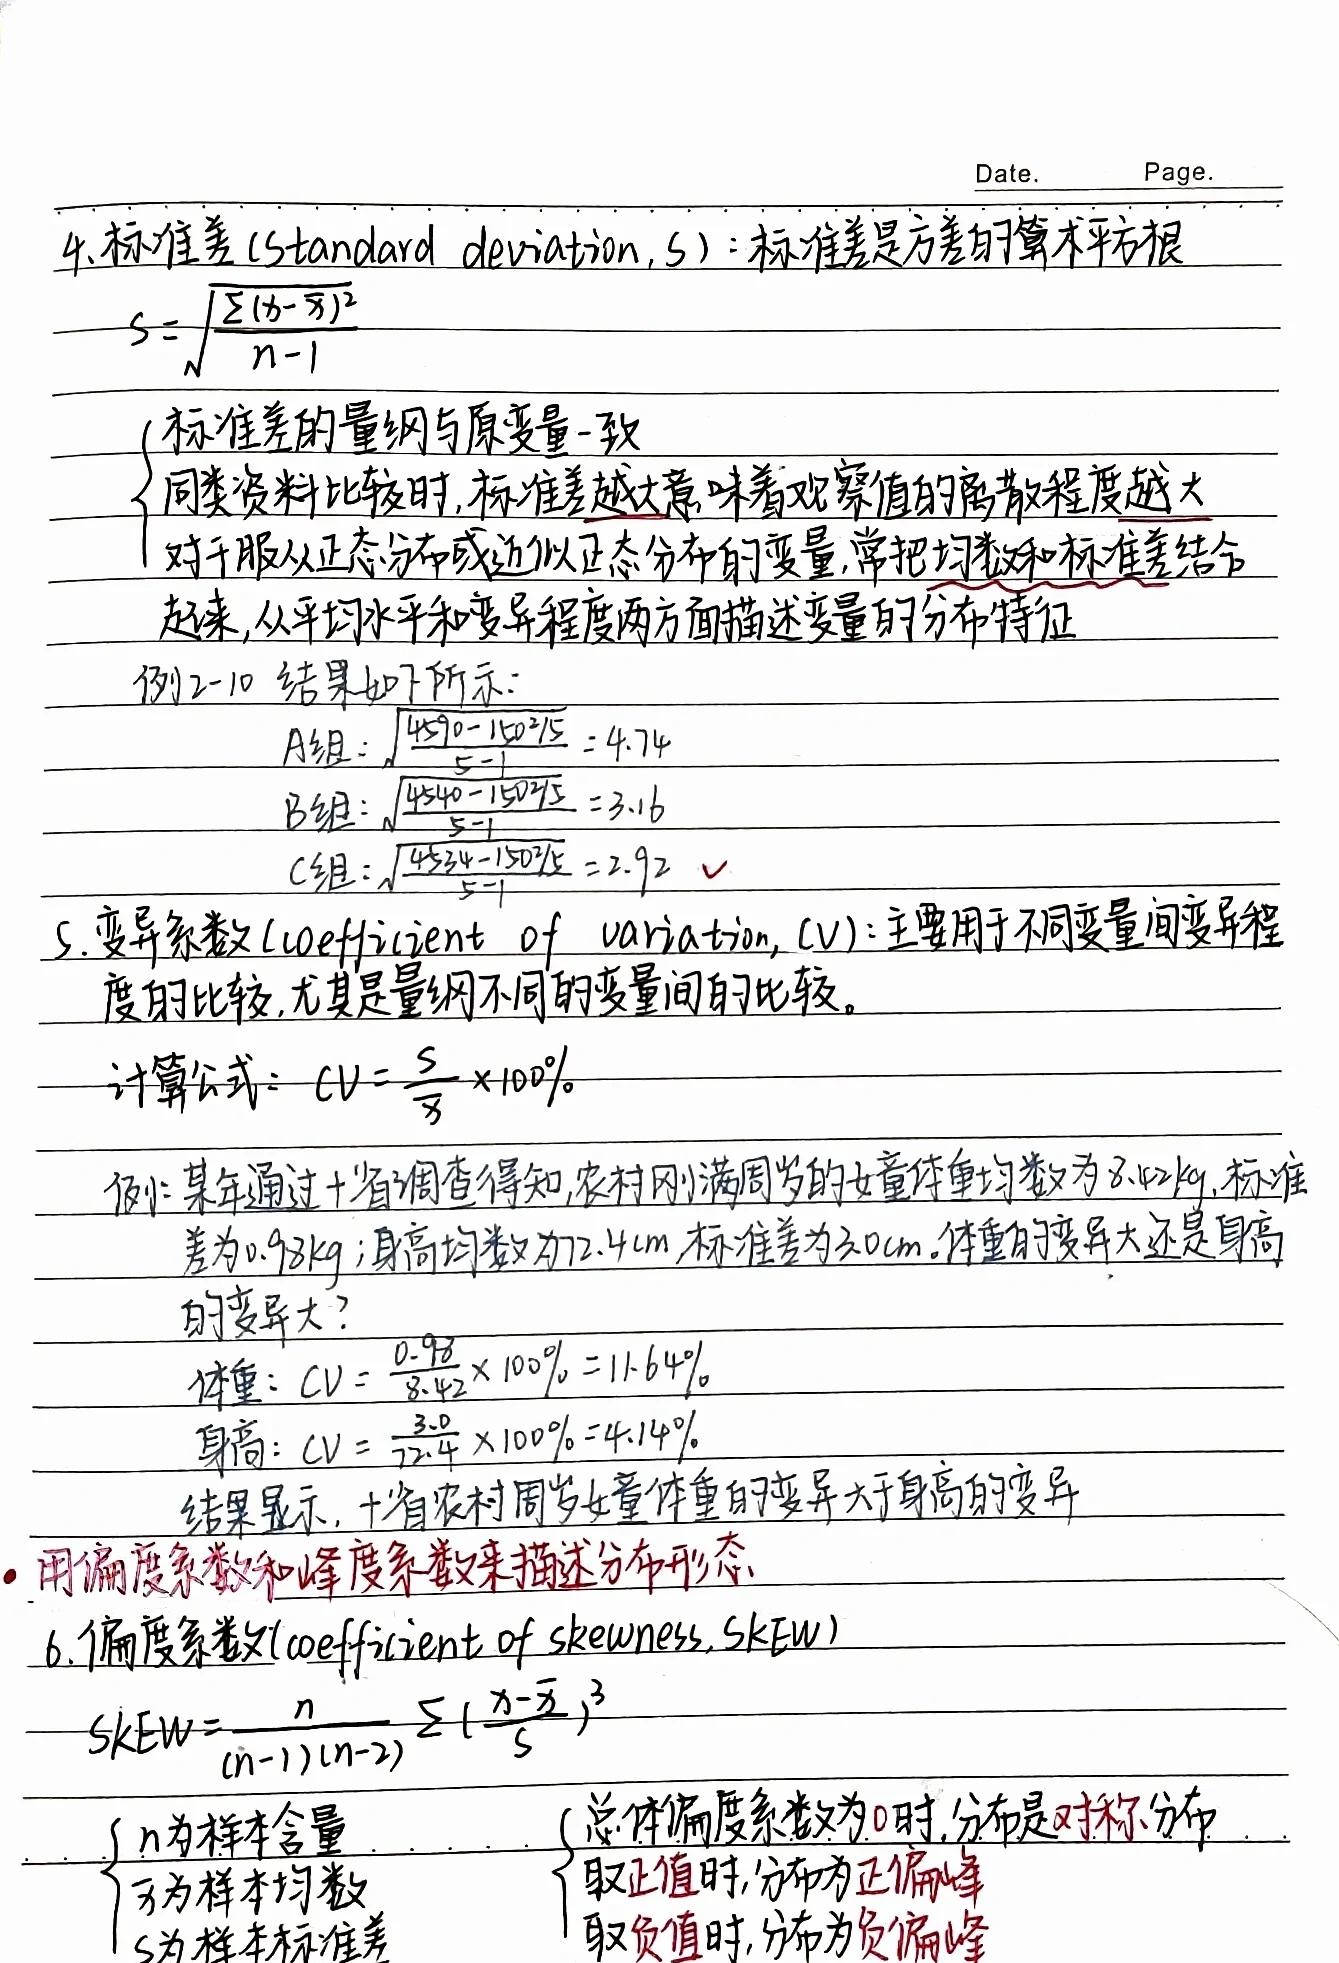 Date. Page.
4.标准差(standard deviation,S):标准差是方差的算术平方根
S=√(Σ(x-x̄)²/(n-1))
标准差的量纲与原变量一致
同类资料比较时,标准差越大意味着观察值的离散程度越大
对于服从正态分布或近似正态分布的变量,常把均数和标准差结合
起来,从平均水平和变异程度两方面描述变量的分布特征
例2-10 结果如下所示:
A组:√((4590-150²/5)/(5-1))=4.74
B组:√((4540-150²/5)/(5-1))=3.16
C组:√((4534-150²/5)/(5-1))=2.92 ✓
5.变异系数(coefficient of variation,CV):主要用于不同变量间变异程
度的比较,尤其是量纲不同的变量间的比较。
计算公式: CV=S/x̄×100%
例:某年通过十省调查得知,农村刚满周岁的女童体重均数为8.42kg,标准
差为0.98kg;身高均数为72.4cm,标准差为3.0cm。体重的变异大还是身高
的变异大?
体重: CV=0.98/8.42×100%=11.64%
身高: CV=3.0/72.4×100%=4.14%
结果显示,十省农村周岁女童体重的变异大于身高的变异
•用偏度系数和峰度系数来描述分布形态
6.偏度系数(coefficient of skewness,SKEW)
SKEW=n/((n-1)(n-2)) Σ((x-x̄)/S)³
n为样本含量
x̄为样本均数
S为样本标准差
总体偏度系数为0时,分布是对称分布
取正值时,分布为正偏峰
取负值时,分布为负偏峰